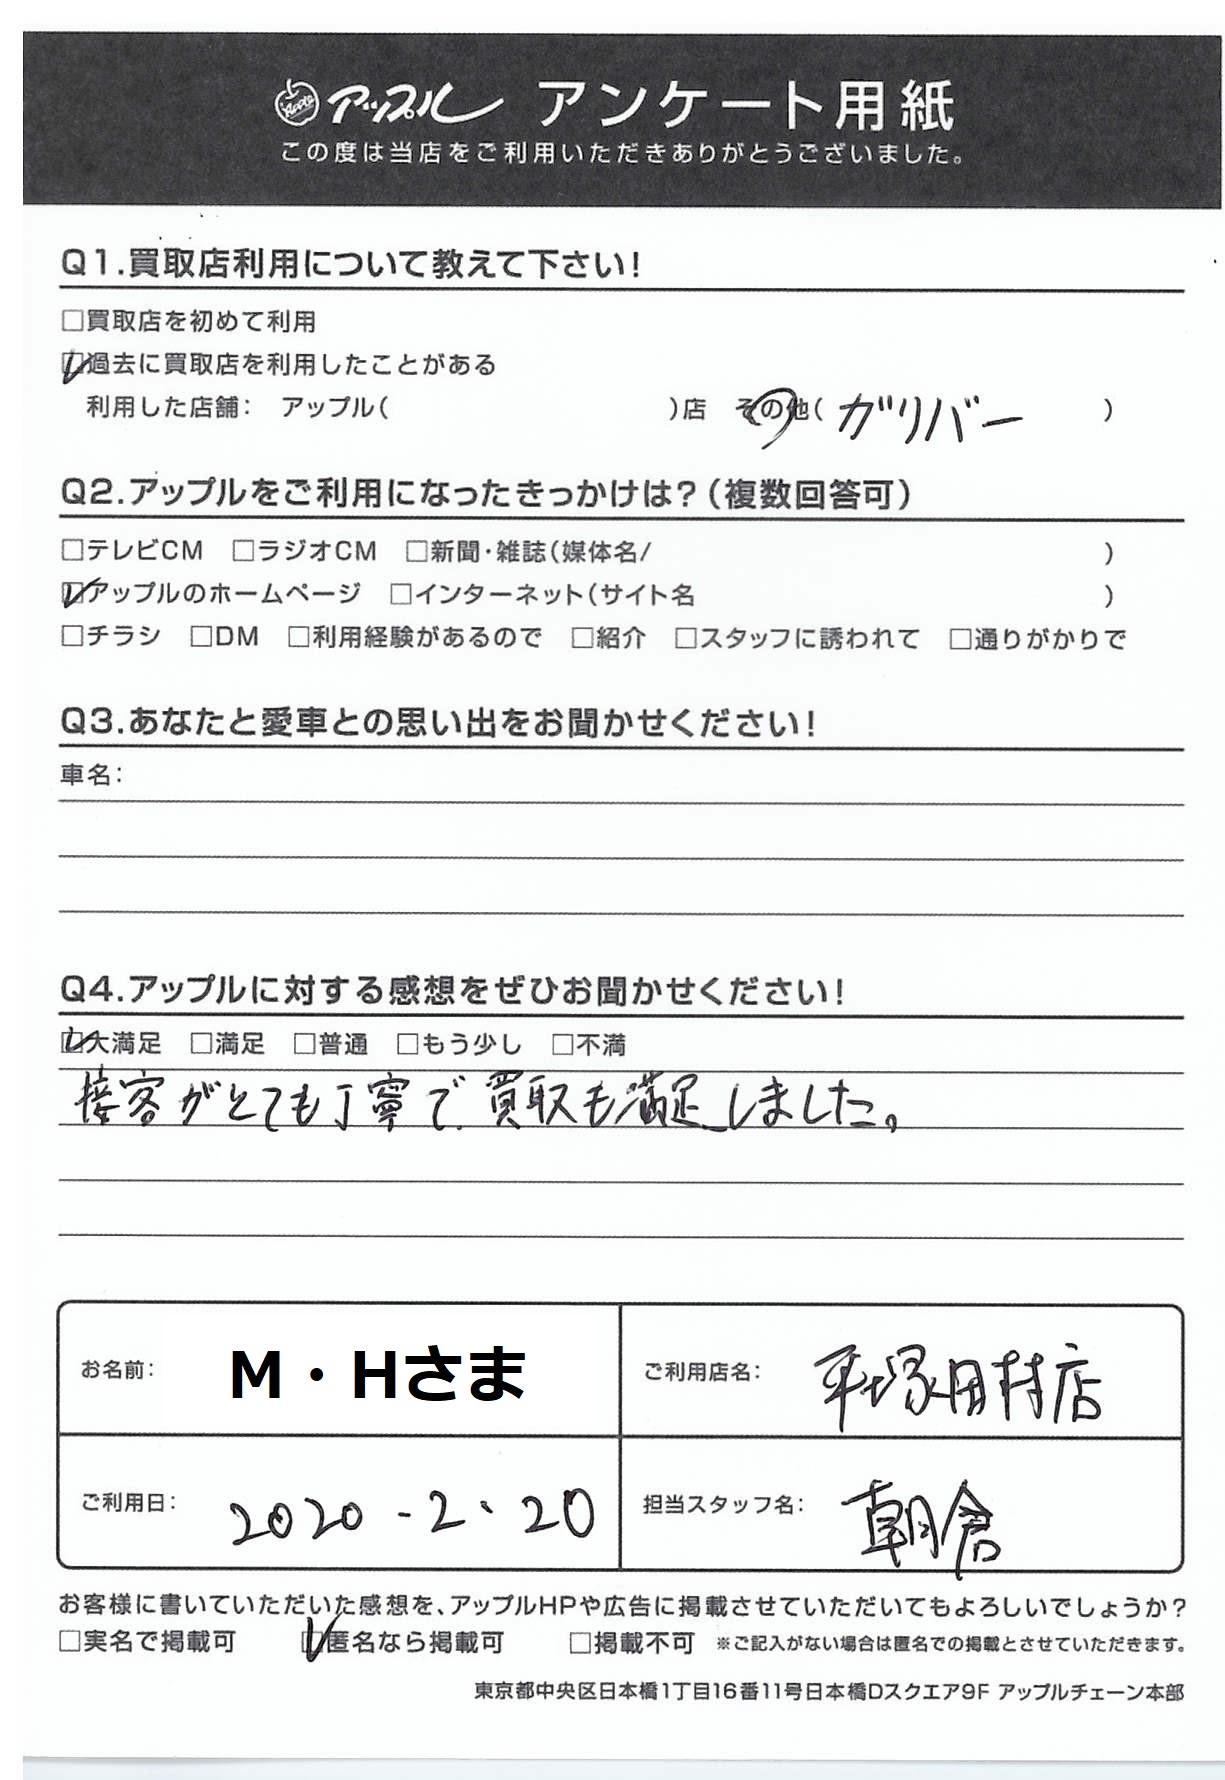 Apple アップル アンケート用紙
この度は当店をご利用いただきありがとうございました。
Q1.買取店利用について教えて下さい!
□買取店を初めて利用
☑過去に買取店を利用したことがある
利用した店舗: アップル( )店 その他( ガリバー )
Q2.アップルをご利用になったきっかけは?(複数回答可)
□テレビCM □ラジオCM □新聞・雑誌(媒体名/ )
☑アップルのホームページ □インターネット(サイト名 )
□チラシ □DM □利用経験があるので □紹介 □スタッフに誘われて □通りがかりで
Q3.あなたと愛車との思い出をお聞かせください!
車名:
Q4.アップルに対する感想をぜひお聞かせください!
☑大満足 □満足 □普通 □もう少し □不満
接客がとても丁寧で買取も満足しました。
お名前: M・Hさま ご利用店名: 平塚田村店
ご利用日: 2020-2・20 担当スタッフ名: 朝倉
お客様に書いていただいた感想を、アップルHPや広告に掲載させていただいてもよろしいでしょうか?
□実名で掲載可 ☑匿名なら掲載可 □掲載不可 ※ご記入がない場合は匿名での掲載とさせていただきます。
東京都中央区日本橋1丁目16番11号日本橋Dスクエア9F アップルチェーン本部